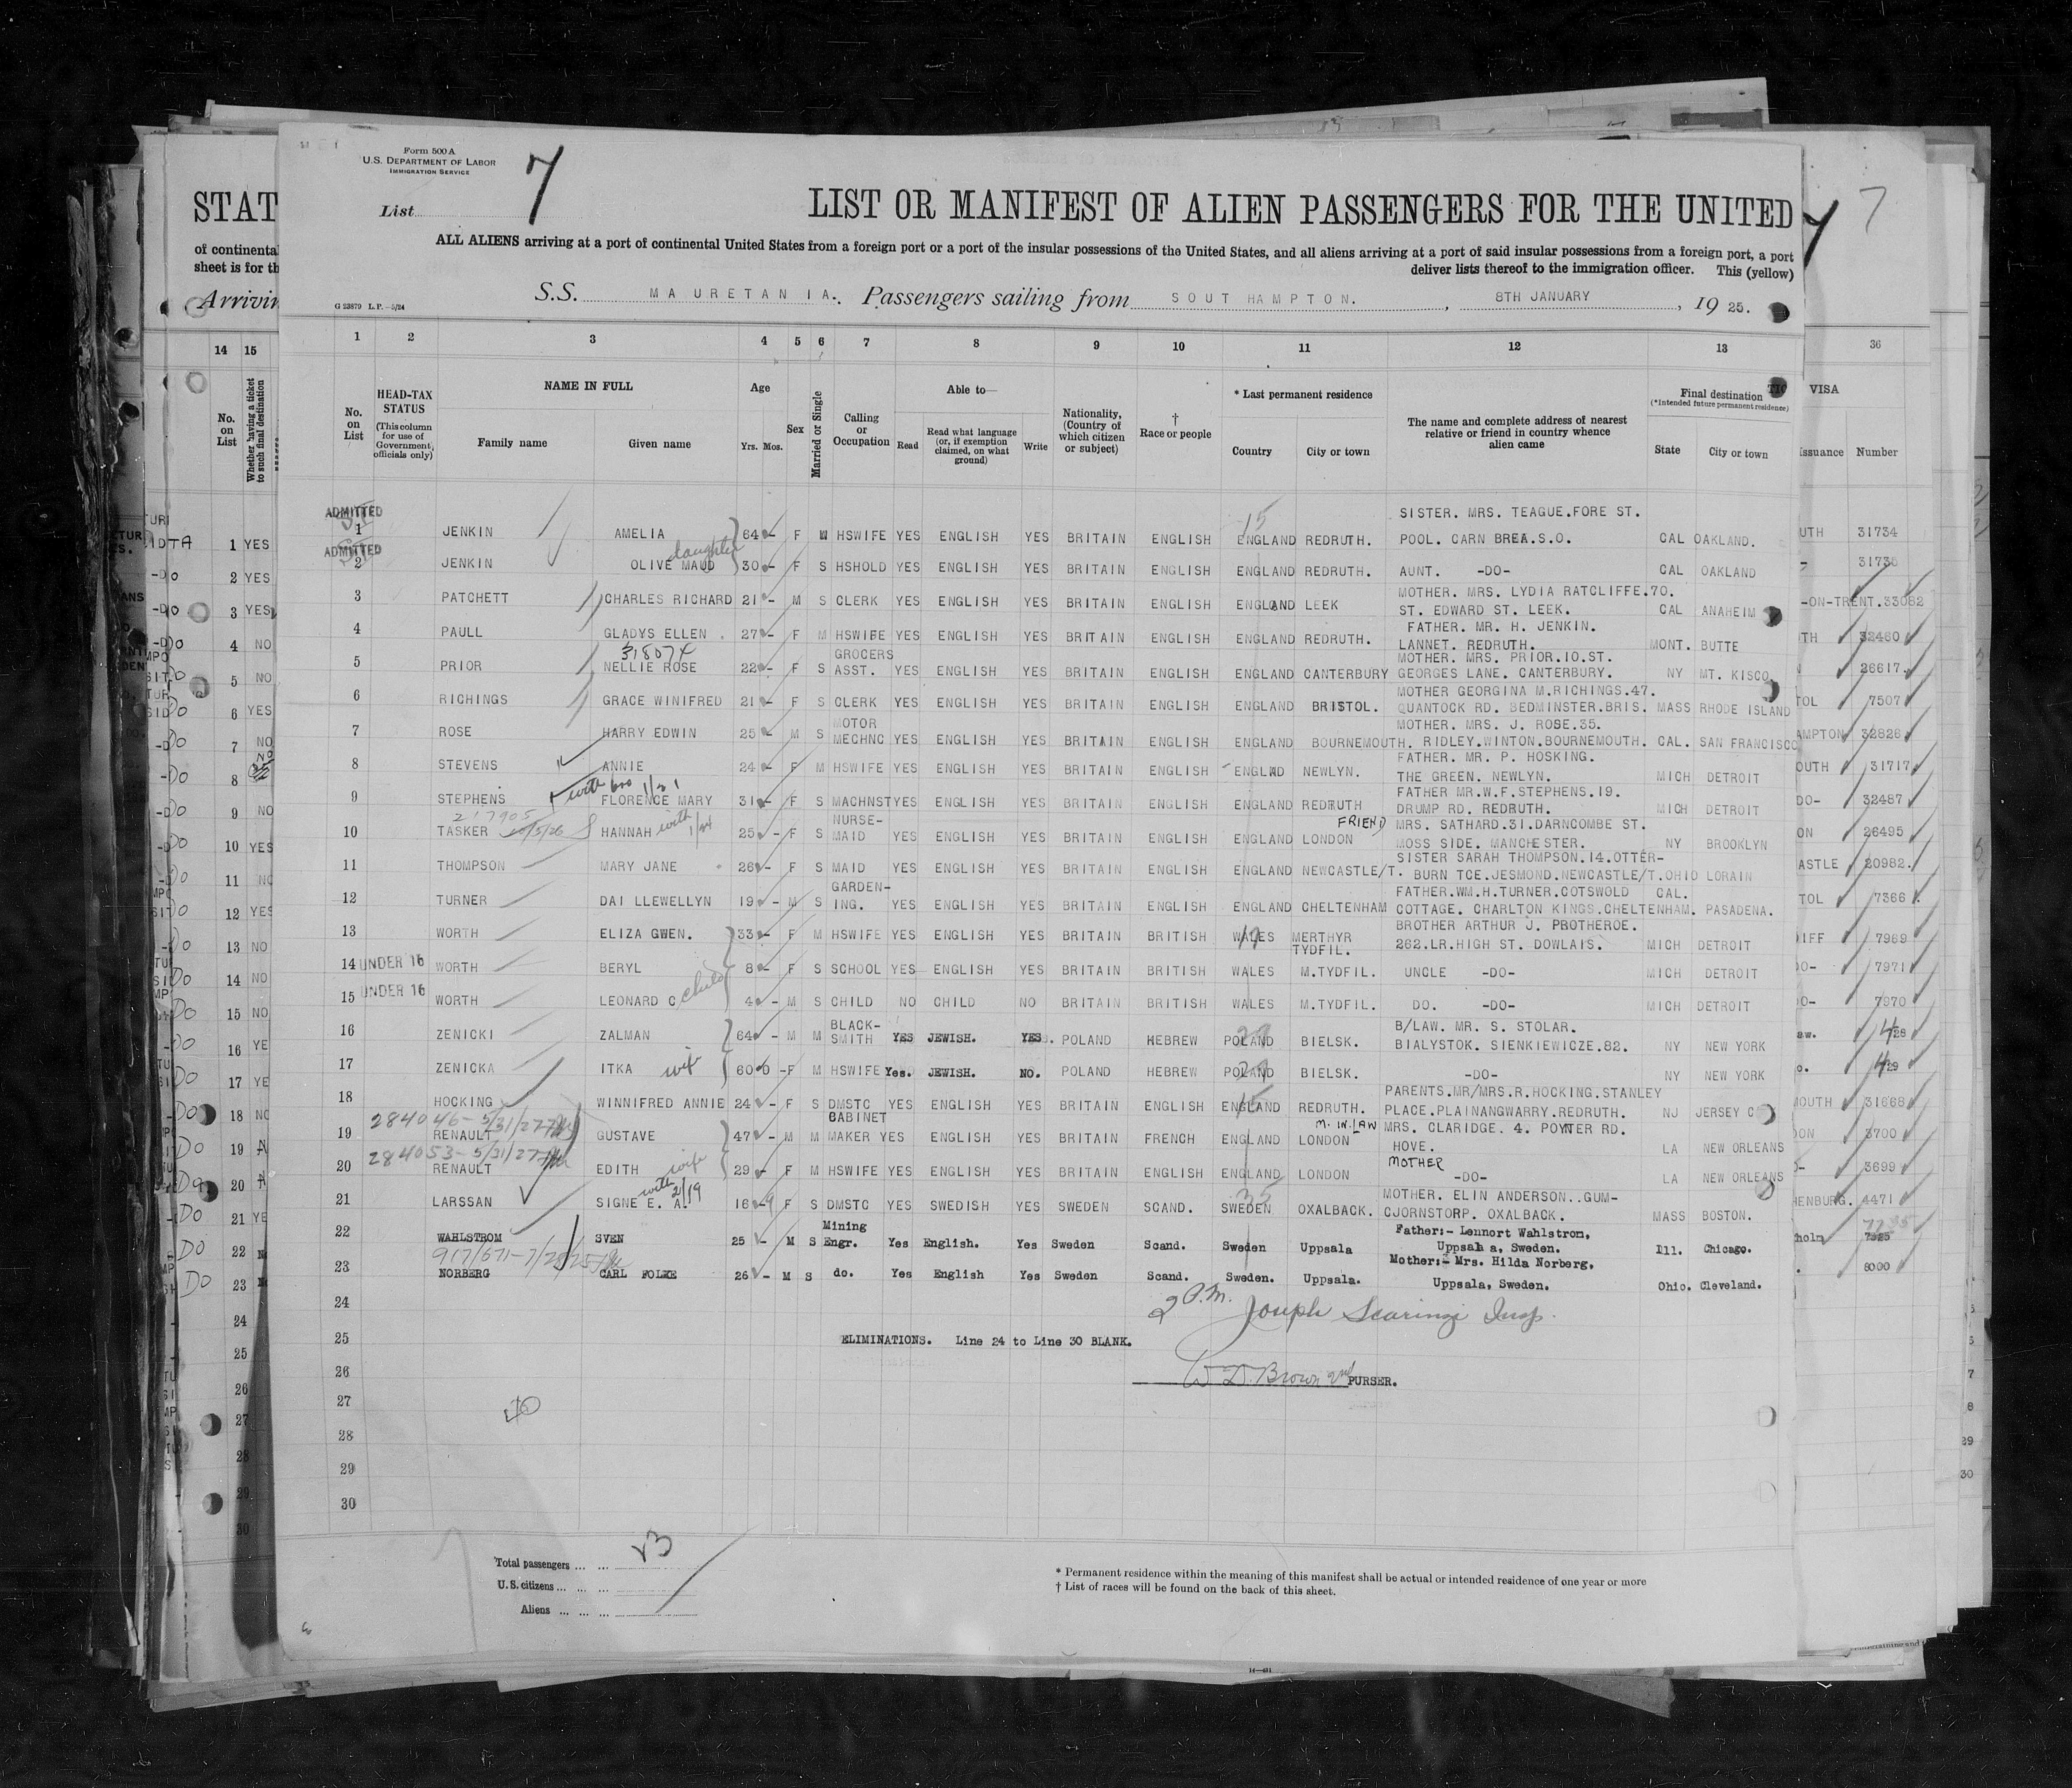 Form 500 A
U.S. DEPARTMENT OF LABOR
IMMIGRATION SERVICE
7
List
LIST OR MANIFEST OF ALIEN PASSENGERS FOR THE UNITED
STAT
7
ALL ALIENS arriving at a port of continental United States from a foreign port or a port of the insular possessions of the United States, and all aliens arriving at a port of said insular possessions from a foreign port, a port
deliver lists thereof to the immigration officer. This (yellow)
of continental
sheet is for th
Arrivin
G 23879 L.P.—5/24
S.S. MAURETANIA. Passengers sailing from SOUTHAMPTON. , 8TH JANUARY , 19 25.
14 15 1 2 3 4 5 6 7 8 9 10 11 12 13 36
No. on List
Whether having a ticket to such final destination
No. on List
HEAD-TAX STATUS
(This column for use of Government officials only)
NAME IN FULL
Family name Given name
Age
Yrs. Mos.
Sex
Married or Single
Calling or Occupation
Able to—
Read
Read what language (or, if exemption claimed, on what ground)
Write
Nationality, (Country of which citizen or subject)
† Race or people
* Last permanent residence
Country City or town
The name and complete address of nearest relative or friend in country whence alien came
Final destination
(*Intended future permanent residence)
State City or town
VISA
Issuance Number
ADMITTED
1 JENKIN AMELIA 64 - F W HSWIFE YES ENGLISH YES BRITAIN ENGLISH ENGLAND REDRUTH. SISTER. MRS. TEAGUE.FORE ST. POOL. CARN BREA.S.O. CAL OAKLAND. 31734
ADMITTED
2 JENKIN OLIVE MAUD daughter 30 - F S HSHOLD YES ENGLISH YES BRITAIN ENGLISH ENGLAND REDRUTH. AUNT. -DO- CAL OAKLAND 31735
3 PATCHETT CHARLES RICHARD 21 - M S CLERK YES ENGLISH YES BRITAIN ENGLISH ENGLAND LEEK MOTHER. MRS. LYDIA RATCLIFFE.70. ST. EDWARD ST. LEEK. CAL ANAHEIM -ON-TRENT.33082
4 PAULL GLADYS ELLEN . 27 - F M HSWIFE YES ENGLISH YES BRITAIN ENGLISH ENGLAND REDRUTH. FATHER. MR. H. JENKIN. LANNET. REDRUTH. MONT. BUTTE 32480
5 PRIOR NELLIE ROSE 22 - F S GROCERS ASST. YES ENGLISH YES BRITAIN ENGLISH ENGLAND CANTERBURY MOTHER. MRS. PRIOR.10.ST. GEORGES LANE. CANTERBURY. NY MT. KISCO 26617.
6 RICHINGS GRACE WINIFRED 21 - F S CLERK YES ENGLISH YES BRITAIN ENGLISH ENGLAND BRISTOL. MOTHER GEORGINA M.RICHINGS.47. QUANTOCK RD. BEDMINSTER.BRIS. MASS RHODE ISLAND 7507
7 ROSE HARRY EDWIN 25 - M S MOTOR MECHNC YES ENGLISH YES BRITAIN ENGLISH ENGLAND BOURNEMOUTH. MOTHER. MRS. J. ROSE.35. RIDLEY.WINTON.BOURNEMOUTH. CAL. SAN FRANCISCO 32826
8 STEVENS ANNIE 24 - F M HSWIFE YES ENGLISH YES BRITAIN ENGLISH NEWLYN. FATHER. MR. P. HOSKING. THE GREEN. NEWLYN. MICH DETROIT 31717
9 STEPHENS FLORENCE MARY 31 - F S MACHNST YES ENGLISH YES BRITAIN ENGLISH ENGLAND REDRUTH FATHER MR.W.F.STEPHENS.19. DRUMP RD. REDRUTH. MICH DETROIT 32487
217905
10 TASKER HANNAH with 25 - F S NURSE-MAID YES ENGLISH YES BRITAIN ENGLISH ENGLAND LONDON FRIEND MRS. SATHARD.31.DARNCOMBE ST. MOSS SIDE. MANCHESTER. NY BROOKLYN 26495
11 THOMPSON MARY JANE 26 - F S MAID YES ENGLISH YES BRITAIN ENGLISH ENGLAND NEWCASTLE/T. SISTER SARAH THOMPSON.14.OTTER-BURN TCE.JESMOND.NEWCASTLE/T. OHIO LORAIN 20982.
12 TURNER DAI LLEWELLYN 19 - M S GARDEN-ING. YES ENGLISH YES BRITAIN ENGLISH ENGLAND CHELTENHAM FATHER.WM.H.TURNER.COTSWOLD COTTAGE. CHARLTON KINGS.CHELTENHAM. CAL. PASADENA. 7366
13 WORTH ELIZA GWEN. 33 - F M HSWIFE YES ENGLISH YES BRITAIN BRITISH WALES MERTHYR TYDFIL. BROTHER ARTHUR J. PROTHEROE. 262.LR.HIGH ST. DOWLAIS. MICH DETROIT 7969
14 UNDER 16 WORTH BERYL 8 - F S SCHOOL YES ENGLISH YES BRITAIN BRITISH WALES M.TYDFIL. UNCLE -DO- MICH DETROIT 7971
15 UNDER 16 WORTH LEONARD C child 4 - M S CHILD NO CHILD NO BRITAIN BRITISH WALES M.TYDFIL. DO. -DO- MICH DETROIT 7970
16 ZENICKI ZALMAN 64 - M M BLACK-SMITH YES JEWISH. YES. POLAND HEBREW POLAND BIELSK. B/LAW. MR. S. STOLAR. BIALYSTOK. SIENKIEWICZE.82. NY NEW YORK 428
17 ZENICKA ITKA wife 60 - F M HSWIFE Yes. JEWISH. NO. POLAND HEBREW POLAND BIELSK. -DO- NY NEW YORK 429
18 HOCKING WINNIFRED ANNIE 24 - F S DMSTC YES ENGLISH YES BRITAIN ENGLISH ENGLAND REDRUTH. PARENTS.MR/MRS.R.HOCKING.STANLEY PLACE.PLAINANGWARRY.REDRUTH. NJ JERSEY C 31668
284046-5/31/27
19 RENAULT GUSTAVE 47 - M M CABINET MAKER YES ENGLISH YES BRITAIN FRENCH ENGLAND LONDON M. IN. LAW MRS. CLARIDGE. 4. POYNTER RD. HOVE. LA NEW ORLEANS 3700
284053-5/31/27
20 RENAULT EDITH wife 29 - F M HSWIFE YES ENGLISH YES BRITAIN ENGLISH ENGLAND LONDON MOTHER -DO- LA NEW ORLEANS 3699
21 LARSSAN SIGNE E. A. with 2/19 16 F S DMSTC YES SWEDISH YES SWEDEN SCAND. SWEDEN OXALBACK. MOTHER. ELIN ANDERSON..GUM-CJORNSTORP. OXALBACK. MASS BOSTON. 4471
22 WAHLSTROM SVEN 25 - M S Mining Engr. Yes English. Yes Sweden Scand. Sweden Uppsala Father:- Lennort Wahlstrom, Uppsala a, Sweden. Ill. Chicago.
23 NORBERG CARL FOLKE 26 - M S do. Yes English Yes Sweden Scand. Sweden. Uppsala. Mother:- Mrs. Hilda Norberg, Uppsala, Sweden. Ohio. Cleveland. 8000
24
2 P.M. Joseph Scaringi Insp.
25 ELIMINATIONS. Line 24 to Line 30 BLANK.
26 W D. Brown 2nd PURSER.
27
28
29
30
Total passengers ... ... 23
U.S. citizens ... ... ...
Aliens ... ... ...
* Permanent residence within the meaning of this manifest shall be actual or intended residence of one year or more
† List of races will be found on the back of this sheet.